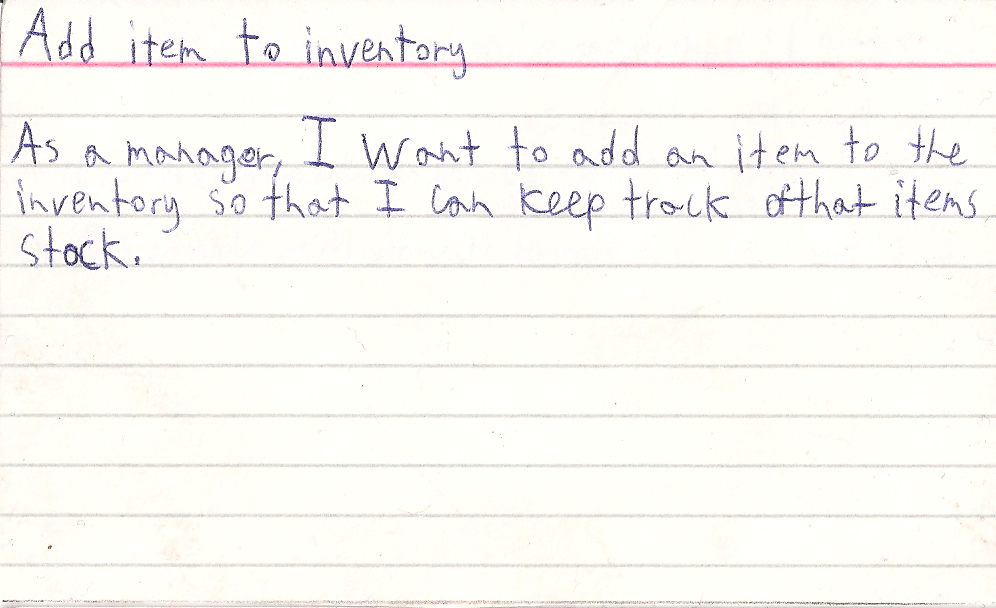 Add item to inventory
As a manager, I want to add an item to the
inventory so that I can keep track of that items
stock.